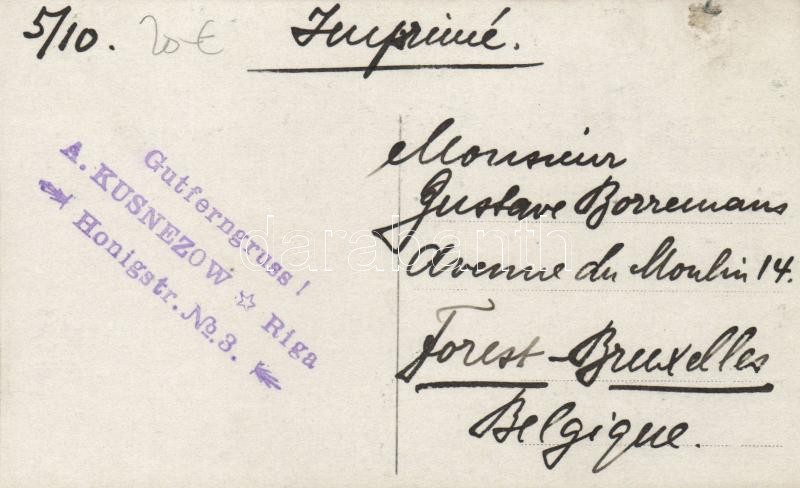 5/10. 20 €
Imprimé.
Gutferngruss!
A. KUSNEZOW ☆ Riga
Honigstr. № 3.
Monsieur
Gustave Borremans
Avenue du Moulin 14.
Forest - Bruxelles
Belgique.
darabanth